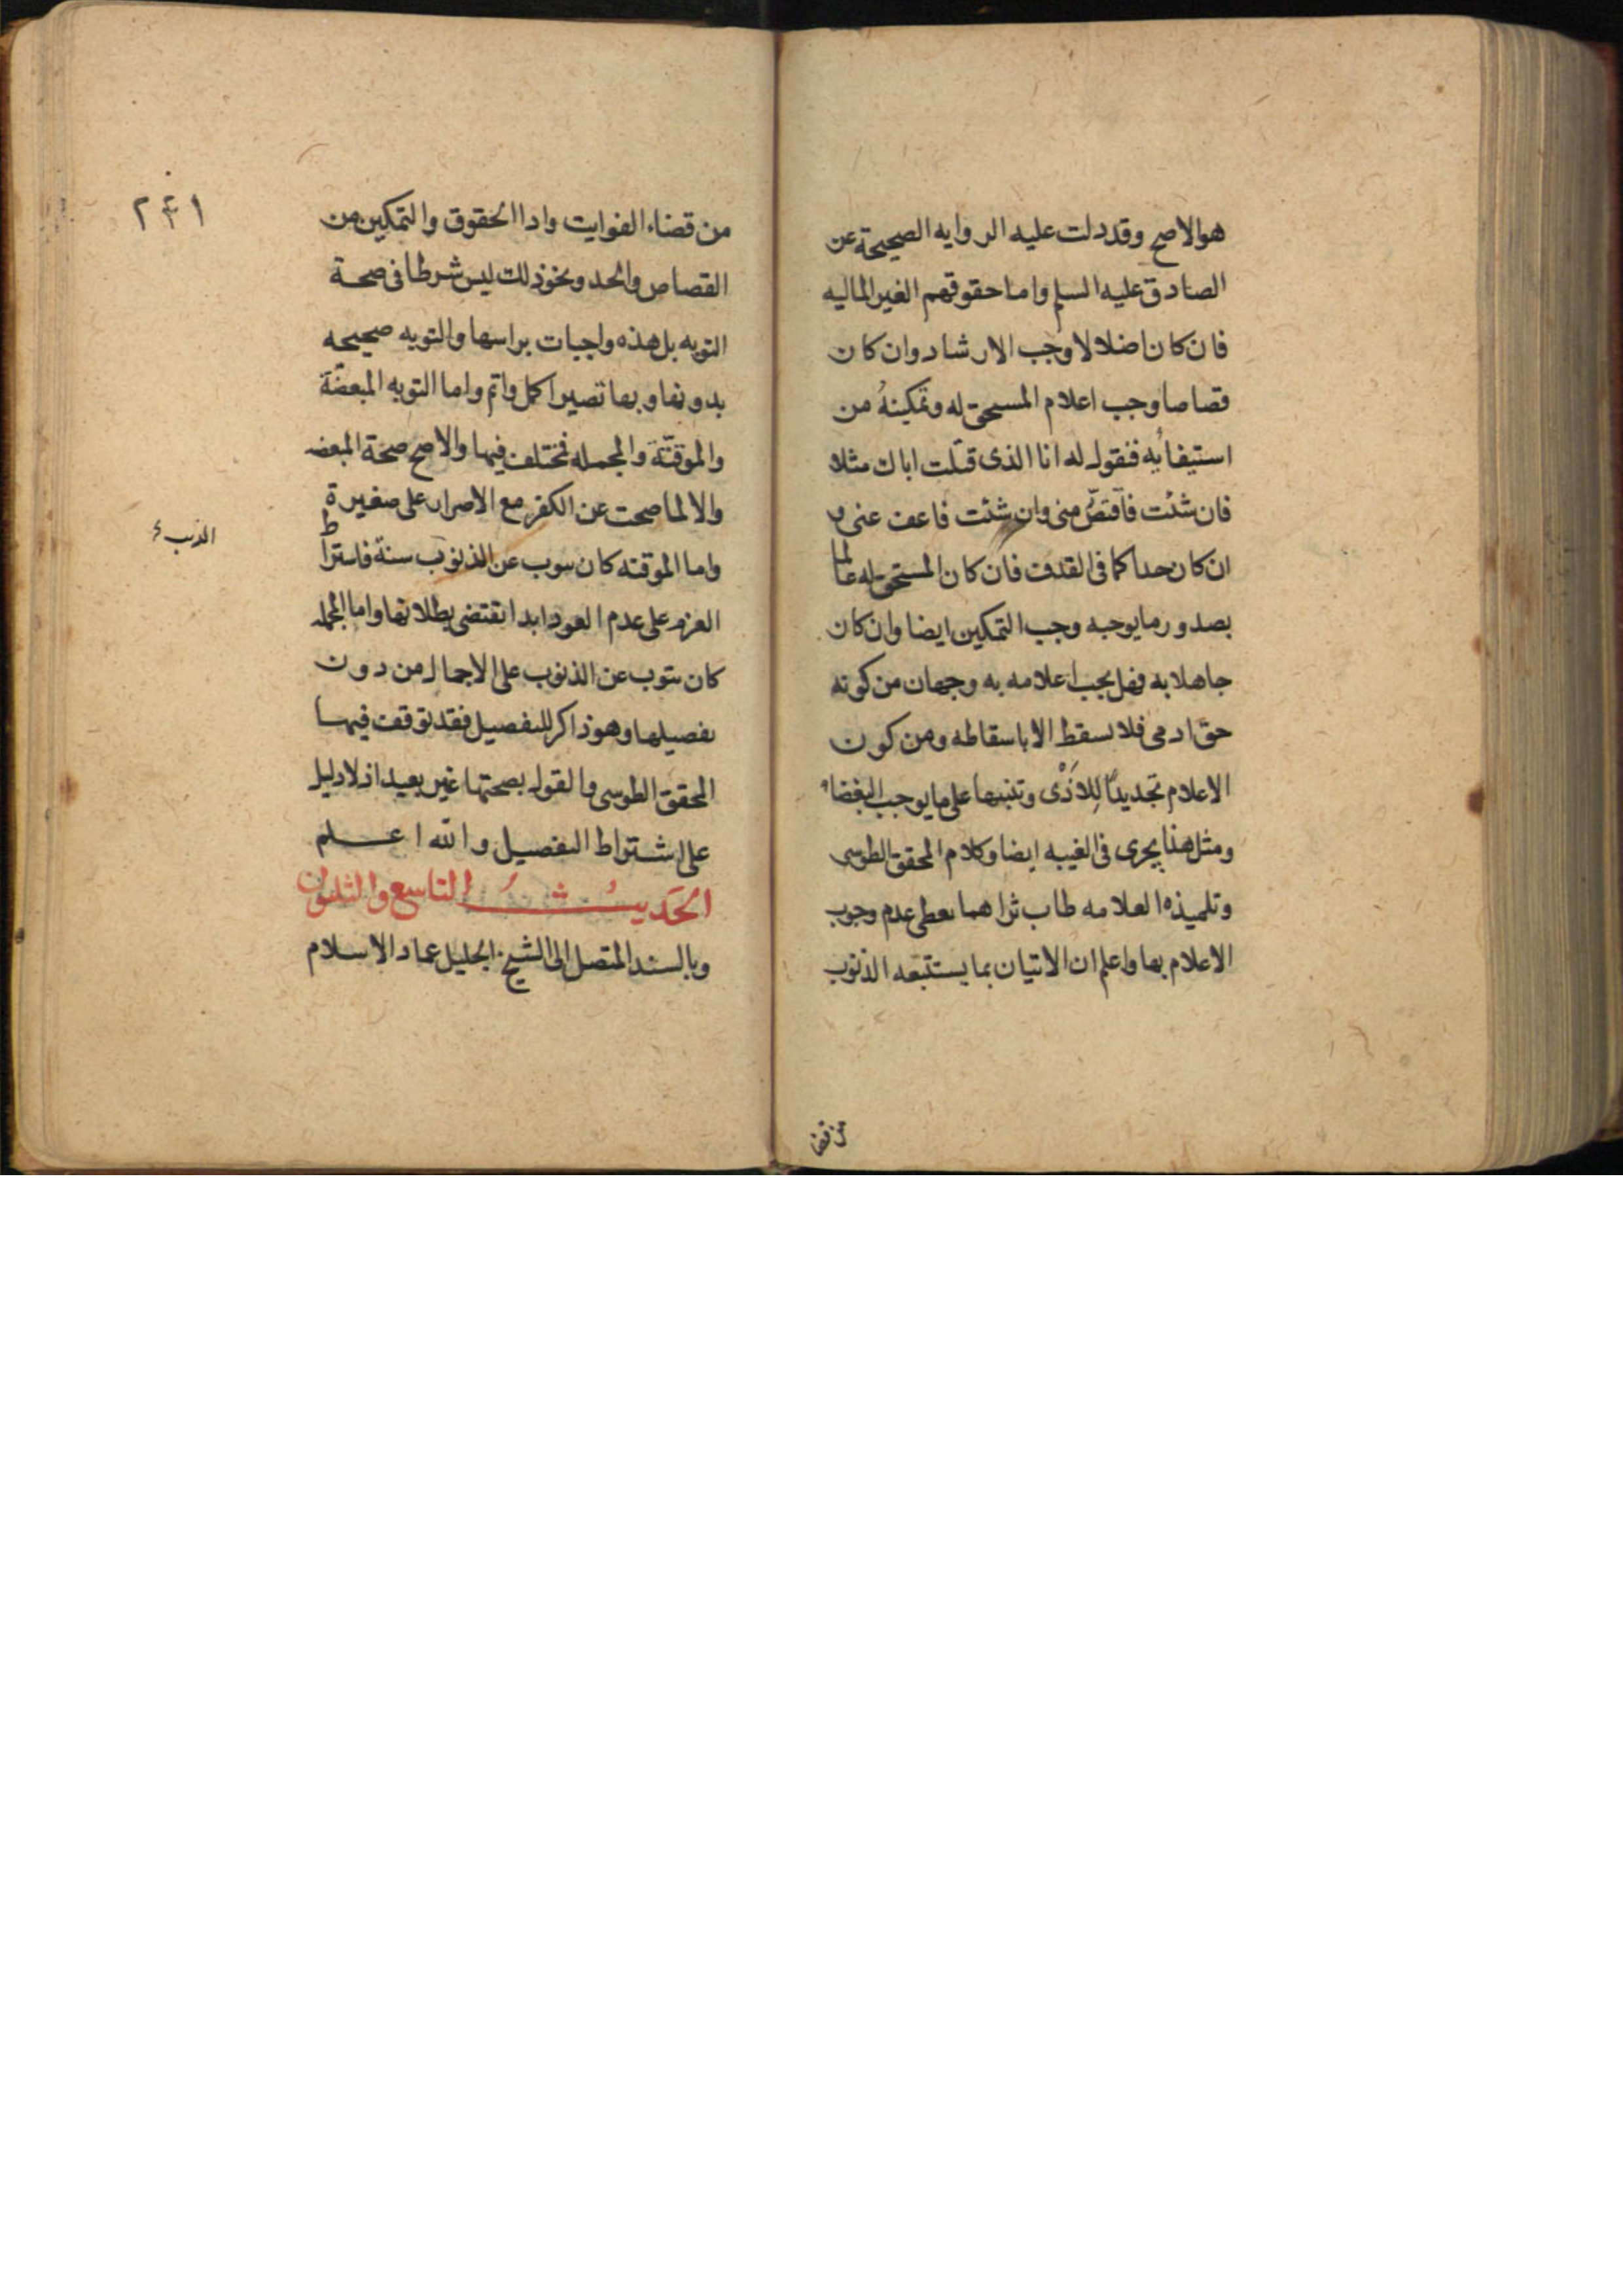 هو الاصح وقد دلت عليه الروايه الصحيحة عن
الصادق عليه السلم واما حقوقهم الغير الماليه
فان كان اضلالا وجب الارشاد وان كان
قصاصا وجب اعلام المسحق له وتمكينهُ من
استيفائِه فنقول له انا الذى قتلت اباك مثلا
فان شئت فآقتصّ منى وان شئت فاعف عنى و
ان كان حدا كما فى القذف فان كان المستحق له عالما
بصدور ما يوجبه وجب التمكين ايضا وان كان
جاهلا به فهل يجب اعلامه به وجهان من كونه
حق ادمى فلا يسقط الا باسقاطه ومن كون
الاعلام تجديدًا للاذَى وتنبيها على ما يوجب البغضاء
ومثل هذا يجرى فى الغيبه ايضا وكلام المحقق الطوسى
وتلميذه العلامه طاب ثراهما يعطى عدم وجوب
الاعلام بها واعلم ان الاتيان بما يستتبعه الذنوب
من قضا
٢۴١
من قضاء الفوايت واداا لحقوق والتمكين من
القصاص والحد ونحو ذلك ليس شرطا فى صحة
التوبه بل هذه واجبات براسها والتوبه صحيحه
بدونها وبها تصير اكمل واتم واما التوبه المبعضّة
والموقتّة والمجمله فمختلف فيها والاصح صحة المبعضه
والا لما صحت عن الكفر مع الاصرار على صغيرة
واما الموقته كان يتوب عن الذنوب سنة فاشتراط
الذنب
العزم على عدم العود ابدا تقتضى بطلانها واما المجمله
كان يتوب عن الذنوب على الاجمال من دون
تفصيلها وهو ذاكر للتفصيل فقد توقف فيها
المحقق الطوسى والقول بصحتها غير بعيد اذ لا دليل
على اشتراط التفصيل والله اعلم
الحَديثُ التاسع والثلثون
وبالسند المتصل الى الشيخ الجليل عماد الاسلام